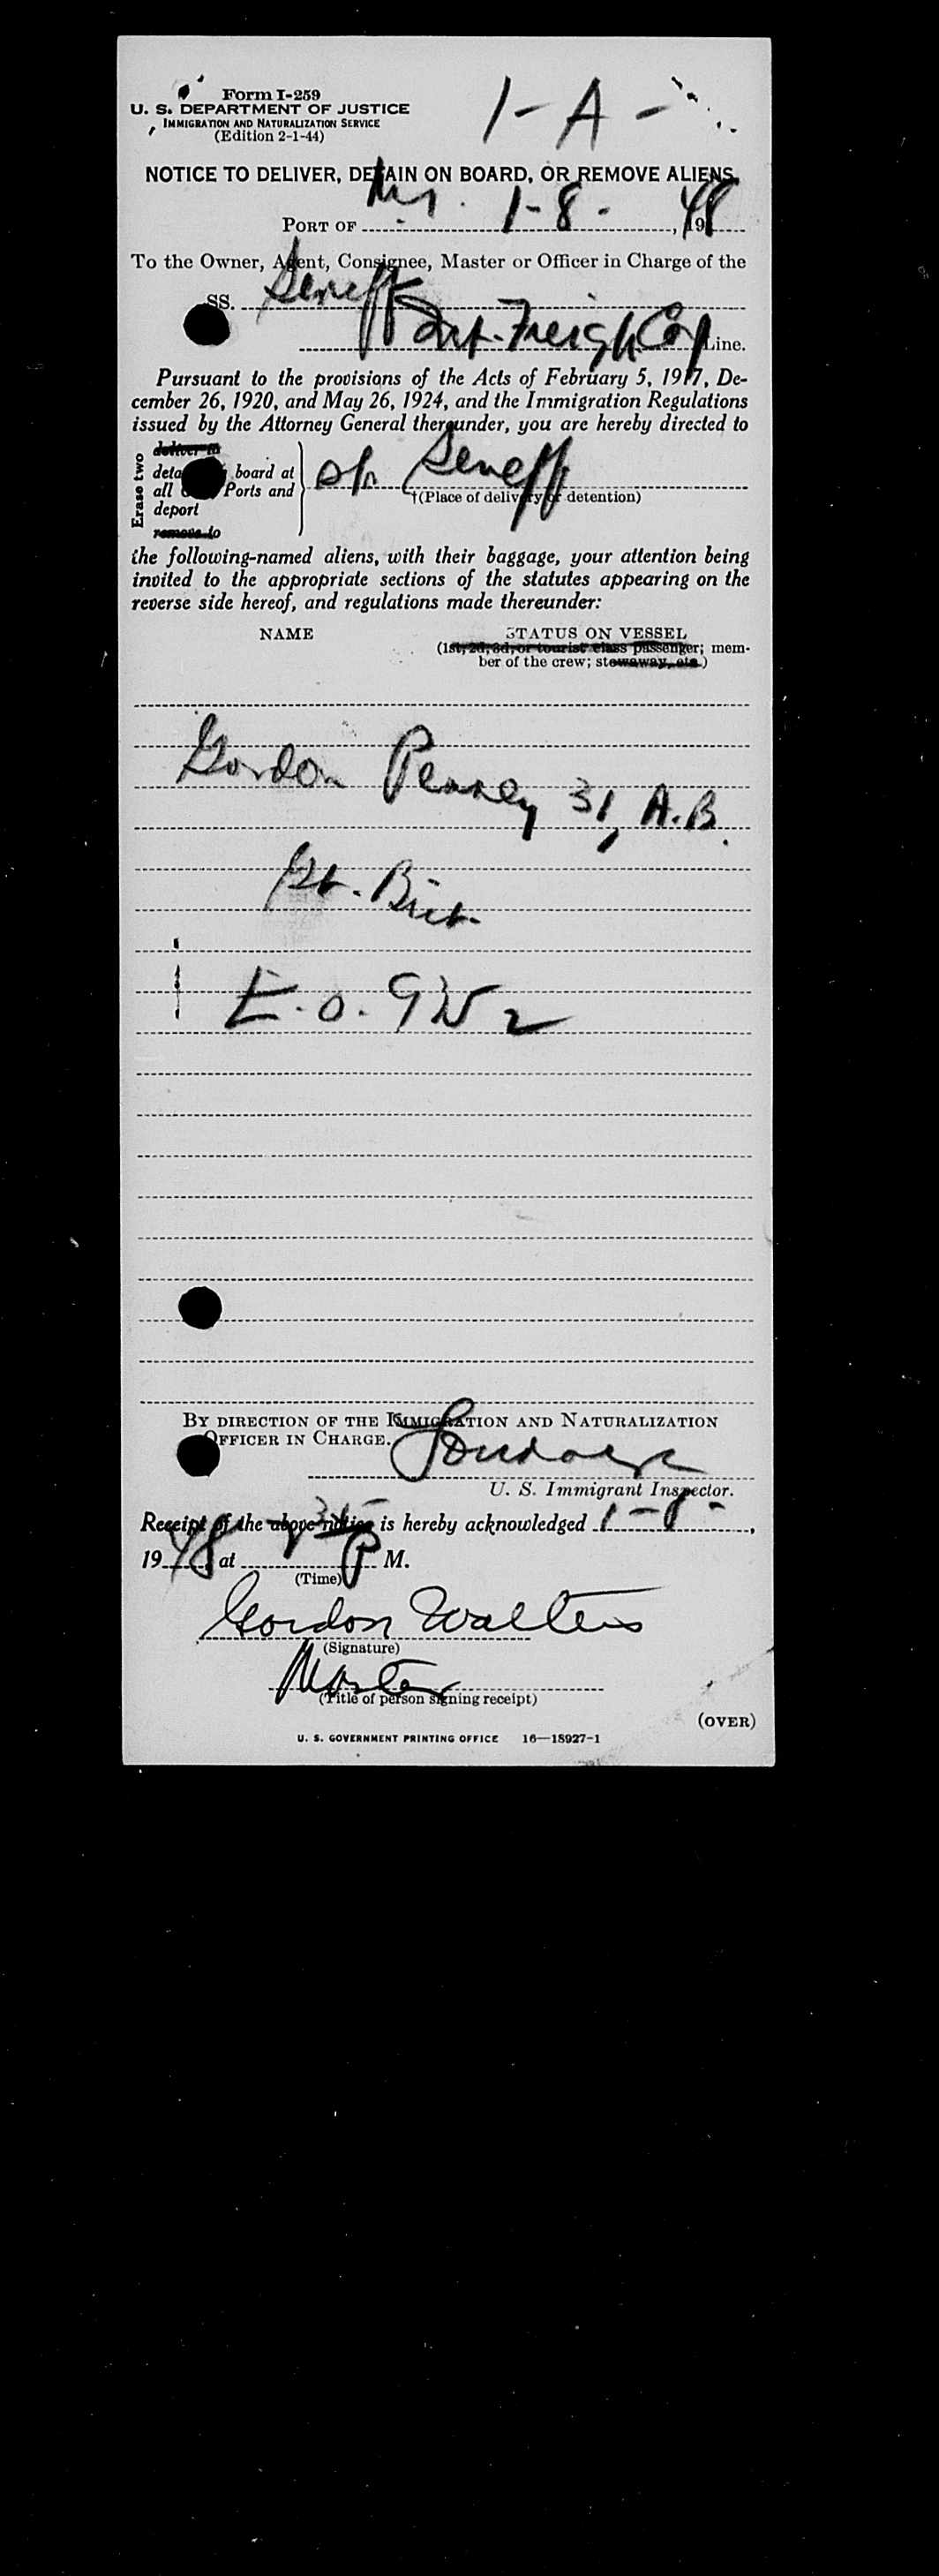 Form I-259
U. S. DEPARTMENT OF JUSTICE
IMMIGRATION AND NATURALIZATION SERVICE
(Edition 2-1-44)
1-A-
NOTICE TO DELIVER, DETAIN ON BOARD, OR REMOVE ALIENS
PORT OF 1-8-, 1948
To the Owner, Agent, Consignee, Master or Officer in Charge of the
SS. Seneff
Int. Freigh Corp Line.
Pursuant to the provisions of the Acts of February 5, 1917, De-
cember 26, 1920, and May 26, 1924, and the Immigration Regulations
issued by the Attorney General thereunder, you are hereby directed to
Erase two
deliver to
board at
all Ports and
deport
remove to
Seneff
†(Place of delivery or detention)
the following-named aliens, with their baggage, your attention being
invited to the appropriate sections of the statutes appearing on the
reverse side hereof, and regulations made thereunder:
NAME STATUS ON VESSEL
(1st, 2d, 3d, or tourist class passenger; mem-
ber of the crew; stowaway, etc.)
Gordon Penney 31, A.B.
Gt. Brit.
E.O. 9352
BY DIRECTION OF THE IMMIGRATION AND NATURALIZATION
OFFICER IN CHARGE.
U. S. Immigrant Inspector.
Receipt of the above notice is hereby acknowledged 1-8-,
1948 at P M.
(Time)
Gordon Walters
(Signature)
Master
(Title of person signing receipt)
(OVER)
U. S. GOVERNMENT PRINTING OFFICE 16—18927-1